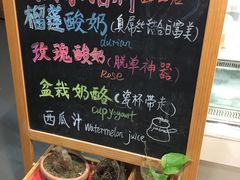 榴莲酸奶(臭屌丝综合白富美)
durian
玫瑰酸奶(脱单神器)
Rose
盆栽奶酪(瓷杯带走)
cup yogurt
西瓜汁 Watermelon juice